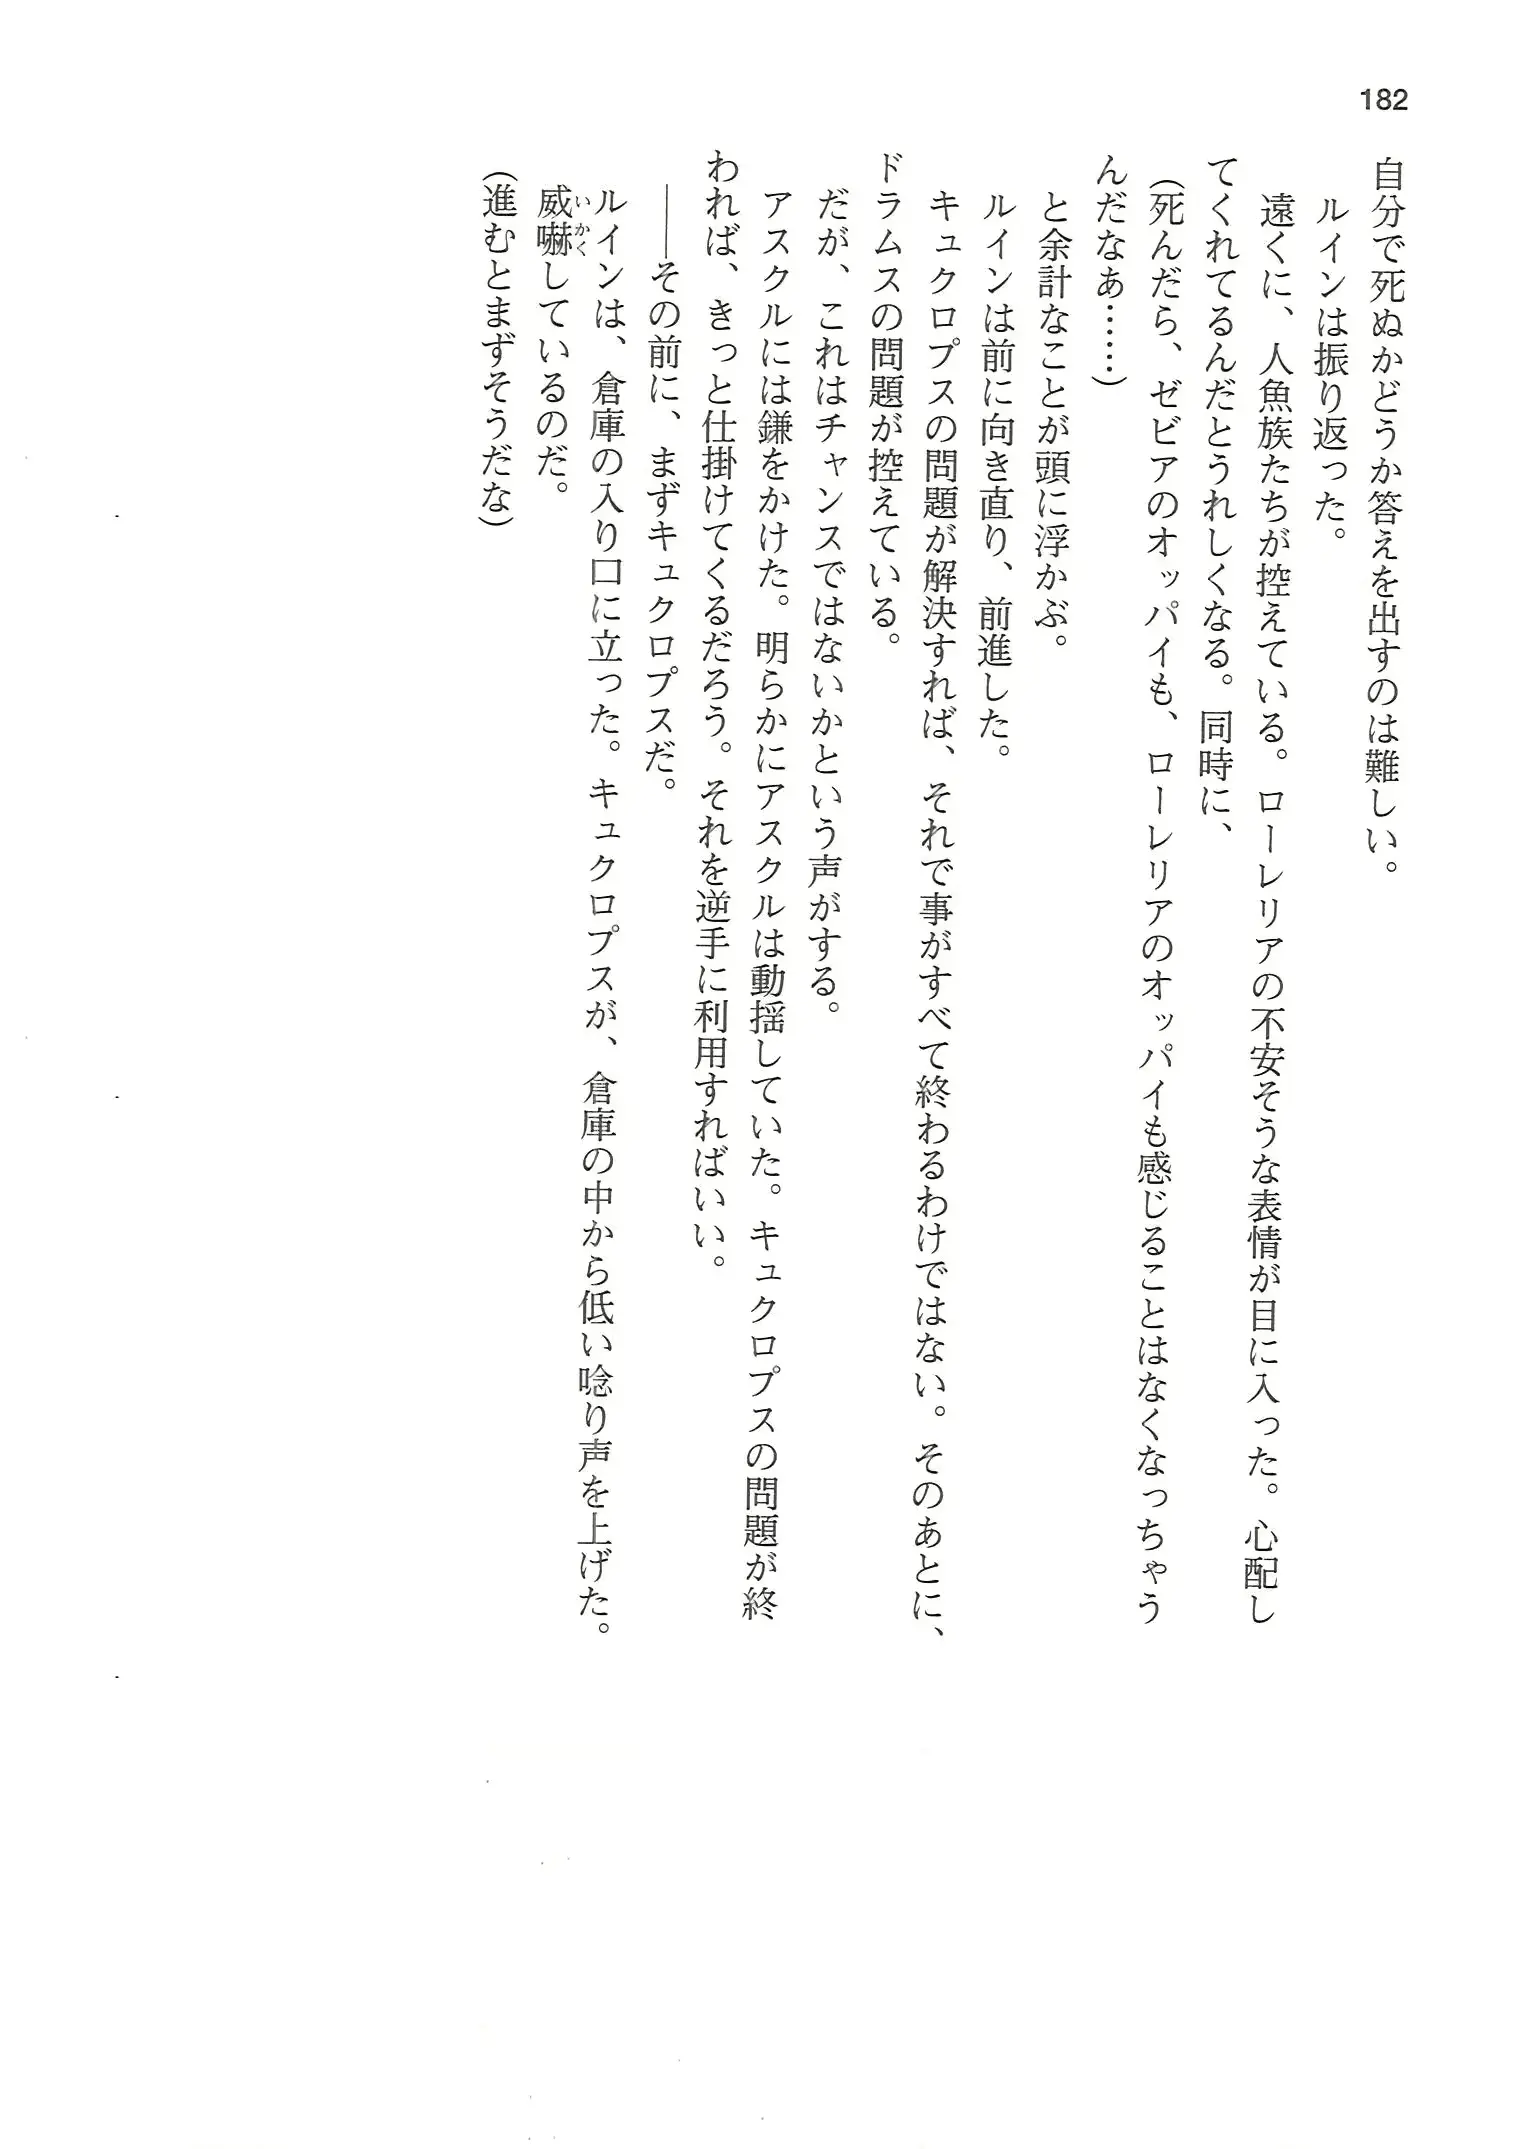 182
自分で死ぬかどうか答えを出すのは難しい。
ルインは振り返った。
遠くに、人魚族たちが控えている。ローレリアの不安そうな表情が目に入った。心配し
てくれてるんだとうれしくなる。同時に、
（死んだら、ゼビアのオッパイも、ローレリアのオッパイも感じることはなくなっちゃう
んだなあ……）
と余計なことが頭に浮かぶ。
ルインは前に向き直り、前進した。
キュクロプスの問題が解決すれば、それで事がすべて終わるわけではない。そのあとに、
ドラムスの問題が控えている。
だが、これはチャンスではないかという声がする。
アスクルには鎌をかけた。明らかにアスクルは動揺していた。キュクロプスの問題が終
われば、きっと仕掛けてくるだろう。それを逆手に利用すればいい。
――その前に、まずキュクロプスだ。
ルインは、倉庫の入り口に立った。キュクロプスが、倉庫の中から低い唸り声を上げた。
威嚇しているのだ。
いかく
（進むとまずそうだな）